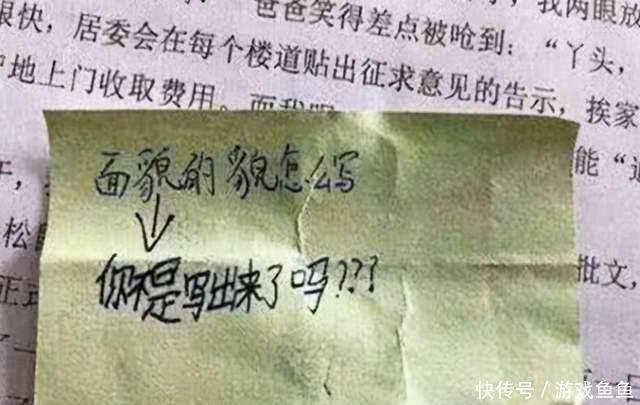 我两眼放
爸爸笑得差点被呛到：“丫头，
很快，居委会在每个楼道贴出征求意见的告示，挨家
户地上门收取费用。而我呢
面貌的貌怎么写
能“道
↓
你不是写出来了吗???
松
批文，
正式
快传号／游戏鱼鱼